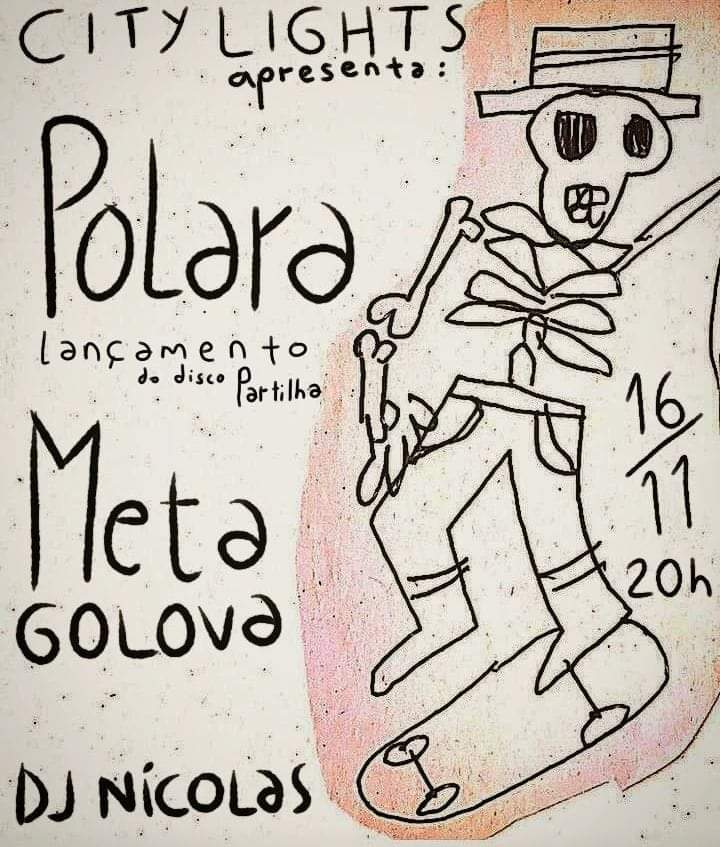 CITY LIGHTS
apresenta:
Polara
lançamento
do disco Partilha
Meta
GOLOVA
DJ NICOLAS
16/11
20h